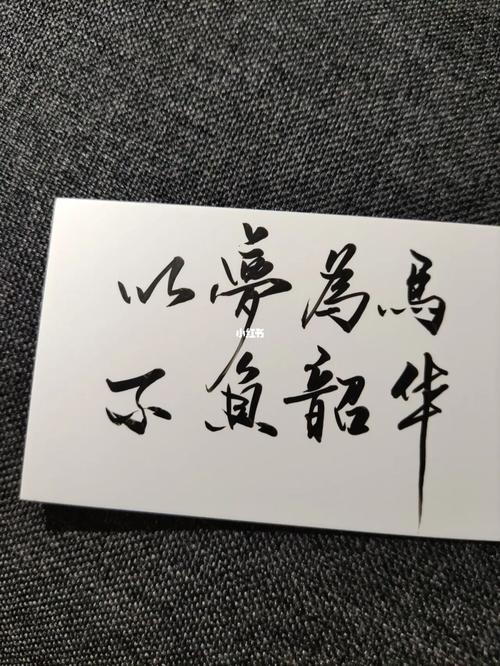 以夢為馬
小红书
不負韶华